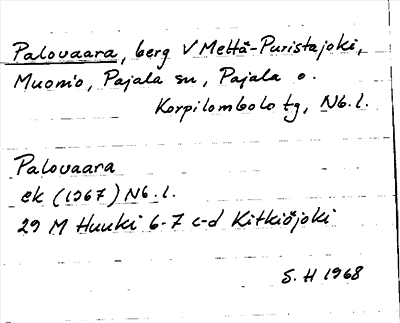 Palovaara, berg V Mettä-Puristajoki,
Muonio, Pajala sn, Pajala o.
Korpilombolo tg, Nb. l.
Palovaara
ek (1967) Nb. l.
29 M Huuki 6-7 c-d Kitkiöjoki
S. H 1968